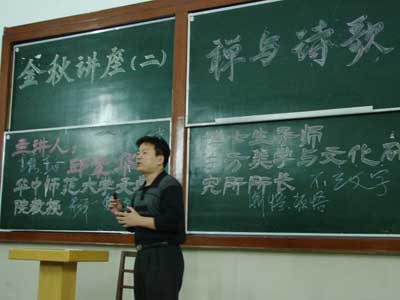 金秋讲座(二)
禅与诗歌
主讲人:
邱紫华
华中师范大学文
院教授
博士生导师
东方美学与文化研
究所所长
不立文字